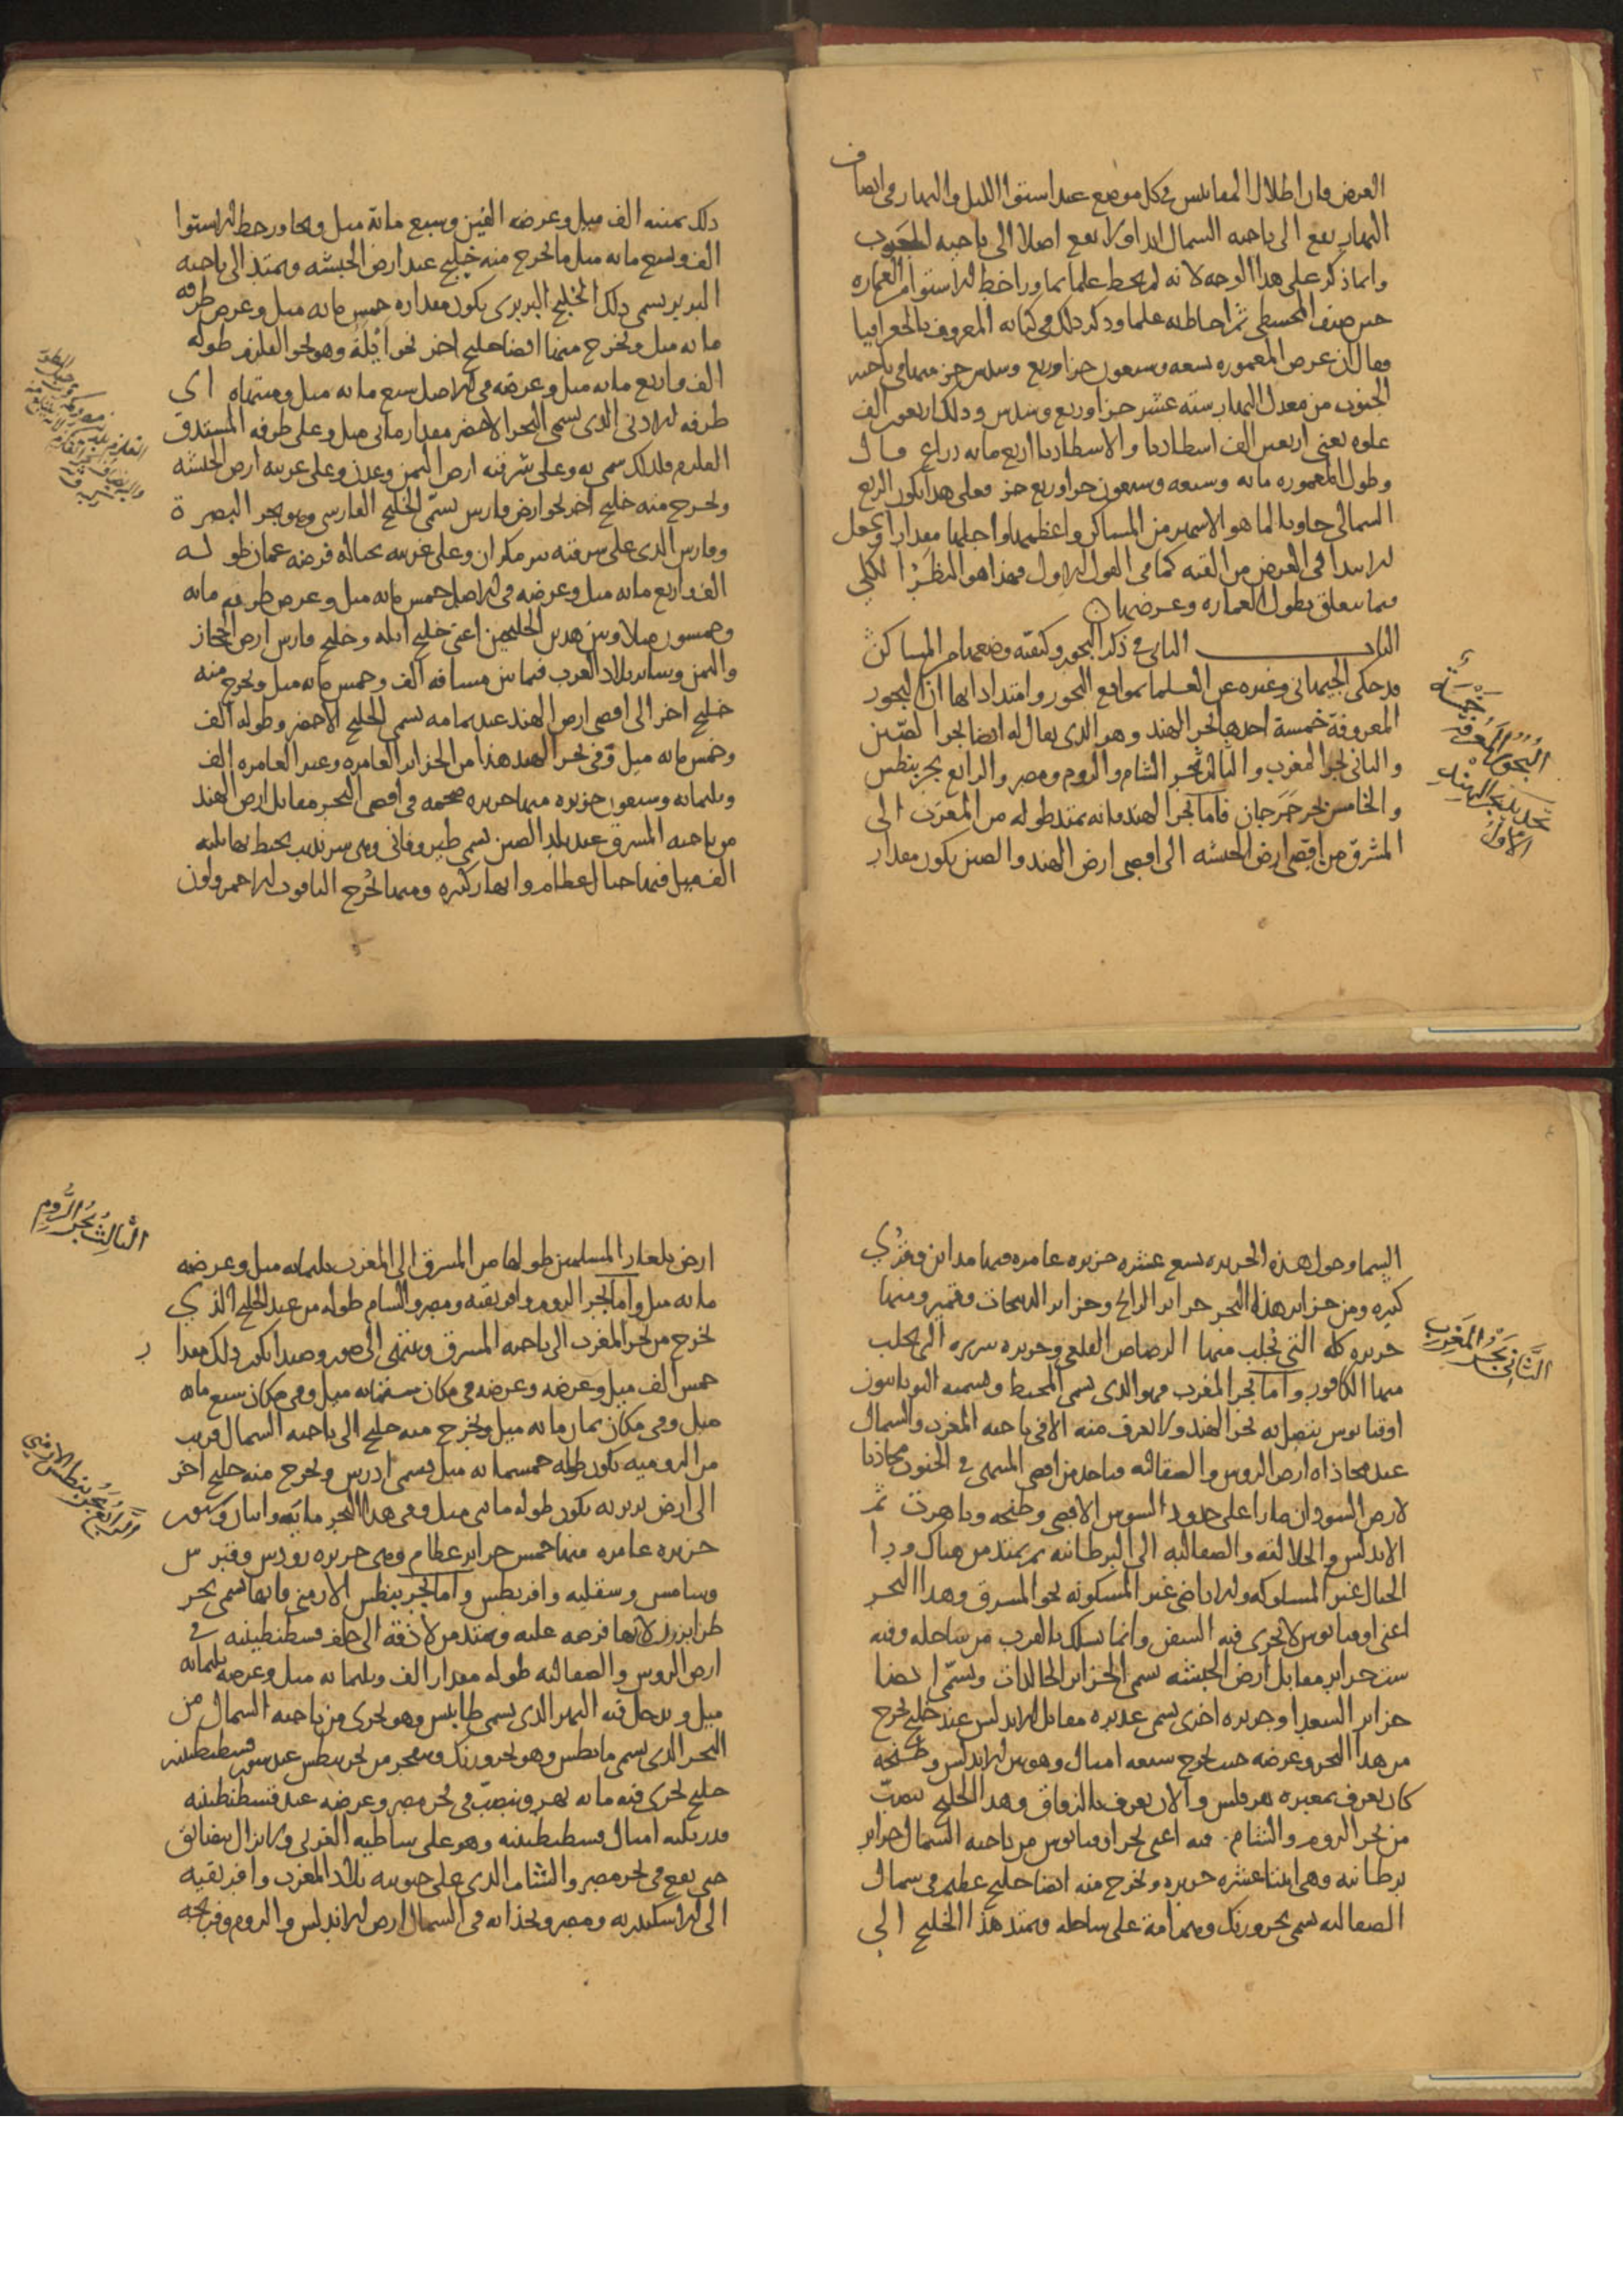 العرض فان اظلال المقاييس في كل موضع عند استوا الليل والنهار في انصاف
النهار يقع الى ناحيه الشمال ابدا ولا يقع اصلا الى ناحيه الجنوب
وانما ذكر على هذا الوجه لانه لم يحط علما بما ورا خط الاستوا من العماره
حين صنف المجسطي ثم احاط به علما وذكر ذلك في كتابه المعروف بالجغرافيا
فقال ان عرض المعموره تسعه وسبعون جزا وربع وسدس جز منها في ناحيه
الجنوب من معدل النهار سته عشر جزا وربع وسدس وذلك اربعون الف
علوه يعني اربعين الف اسطاديا والاسطاديا اربع مايه ذراع قال
وطول المعموره مايه وسبعه وسبعون جزا وربع جز فعلى هذا يكون الربع
الشمالي حاويا لما هو الاشهر من المساكن واعظمها واجلها مقدارا ويجعل
الابتدا في العرض من القبه كما في القول الاول فهذا هو النظر الكلي
فيما يتعلق بطول العماره وعرضها
الباب الثاني في ذكر البحور وكيفيه وضعها من المساكن
قد حكى الجيهاني وغيره عن العلما بمواقع البحور وامتداداتها ان البحور
المعروفة خمسة احدها بحر الهند وهو الذي يقال له ايضا بحر الصين
والثاني بحر المغرب والثالث بحر الشام والروم ومصر والرابع بحر بنطس
والخامس بحر جرجان فاما بحر الهند فانه يمتد طوله من المغرب الى
المشرق من اقصى ارض الحبشه الى اقصى ارض الهند والصين يكون مقدار
خمسة
البحور المعروفة
تحديد بحر الهند
الاول
ذلك ثمنيه الف ميل وعرضه الفين وسبع مائة ميل ويجاوز خط الاستوا
الف وسبع مايه ميل ما يخرج منه خليج عند ارض الحبشه ويمتد الى ناحيه
البربر يسمى ذلك الخليج البربري يكون مقداره خمس مايه ميل وعرض طرفه
مايه ميل ويخرج منها ايضا خليج اخر نحو أيلة وهو بحر القلزم طوله
الف واربع مايه ميل وعرضه في الاصل سبع مايه ميل ومنتهاه اي
طرفه الادنى الذي يسمى البحر الاخضر مقدار مائتي ميل وعلى طرفه المستدق
القلزم فلذلك سمي به وعلى شرقيه ارض اليمن وعدن وعلى غربيه ارض الحبشه
ويخرج منه خليج اخر نحو ارض فارس يسمى الخليج الفارسي وهو بحر البصرة
وفارس الذي على شرقيه تيز مكران وعلى غربيه بحياله فرضه عمان طوله
الف واربع مايه ميل وعرضه في الاصل خمس مايه ميل وعرض طرفه مايه
وخمسون ميلا وبين هذين الخليجين اعني خليج ايله وخليج فارس ارض الحجاز
واليمن وساير بلاد العرب فيما بين مسافه الف وخمس مايه ميل ويخرج منه
خليج اخر الى اقصى ارض الهند عند تمامه يسمى الخليج الاخضر وطوله الف
وخمس مايه ميل وفي بحر الهند هذا من الجزاير العامره وغير العامره الف
وثلثمايه وسبعون جزيره منها جزيره ضخمه في اقصى البحر مقابل ارض الهند
من ناحيه المشرق عند بلد الصين تسمى طبروفاني وهي سرنديب يحيط بها ثلثه
الف ميل فيها جبال عظام وانهار كثيره ومنها يخرج الياقوت الاحمر ولون
السما وحول هذه الجزيره تسع عشره جزيره عامره فيها مداين وقرى
كثيره ومن جزاير هذا البحر جزاير الرانج وجزاير الديبجات وقمير ومنها
جزيره كله التي يجلب منها الرصاص القلعي وجزيره سريره التي يجلب
منها الكافور واما بحر المغرب فهو الذي يسمى المحيط ويسميه اليونانيون
اوقيانوس يتصل به بحر الهند ولا يعرف منه الا في ناحيه المغرب والشمال
عند محاذاه ارض الروس والصقالبه فياخذ من اقصى المنتهى في الجنوب محاذيا
لارض السودان مارا على حدود السوس الاقصى وطنجه وتاهرت ثم
الاندلس والجلالقه والصقالبه الى البرطانيه ثم يمتد من هناك ورا
الجبال غير المسلوكه والاراضي غير المسكونه نحو المشرق وهذا البحر
اعني اوقيانوس لا تجري فيه السفن وانما تسلك بالقرب من ساحله وفيه
ست جزاير مقابل ارض الحبشه تسمى الجزاير الخالدات وتسمى ايضا
جزاير السعدا وجزيره اخرى تسمى غديره مقابل الاندلس عند خليج يخرج
من هذا البحر وعرضه حيث يخرج سبعه اميال وهو بين الاندلس وطنجه
كان يعرف بمعبره هرقلس والان يعرف بالزقاق وهذا الخليج ينصب
من بحر الروم والشام فيه اعني بحر اوقيانوس من ناحيه الشمال جزاير
برطانيه وهي اثنتا عشره جزيره ويخرج منه ايضا خليج عظيم في شمال
الصقالبه يسمى بحر ورنك وهم امة على ساحله ويمتد هذا الخليج الى
الثاني بحر المغرب
ارض بلغار المسلمين طولها من المشرق الى المغرب ثلثمايه ميل وعرضه
مايه ميل واما بحر الروم وافريقيه ومصر والشام طوله من عند الخليج الذي
يخرج من بحر المغرب الى ناحيه المشرق وينتهي الى صور وصيدا يكون ذلك مقدار
خمس الف ميل وعرضه في مكان ستمائه ميل وفي مكان سبع مايه
ميل وفي مكان ثمان مايه ميل ويخرج منه خليج الى ناحيه الشمال قريب
من الروميه يكون طوله خمسمايه ميل يسمى ادرس ويخرج منه خليج اخر
الى ارض نربونه يكون طوله مايتي ميل وفي هذا البحر مايه واثنان وستون
جزيره عامره منها خمس جزاير عظام وهي جزيره رودس وقبرس
وسامس وسقليه واقريطس واما بحر بنطس الارمني فانها تسمى بحر
طرابزون لانها فرضه عليه ويمتد من لاذقه الى خلف قسطنطينيه في
ارض الروس والصقالبه طوله مقدار الف وثلثمايه ميل وعرضه ثلثمايه
ميل ويدخل فيه النهر الذي يسمى طانيس وهو يجري من ناحيه الشمال من
البحر الذي يسمى مايطس وهو بحر ورنك وينفجر من بحر بنطس عند سور قسطنطينيه
خليج يجري فيه ماؤه كنهر وينصب في بحر مصر وعرضه عند قسطنطينيه
قدر ثلثه اميال وقسطنطينيه وهو على شاطيه الغربي ولا يزال يتضايق
حتى يقع في بحر مصر والشام الذي على جنوبيه بلاد المغرب وافريقيه
الى الاسكندريه ومصر وبحذائه في الشمال ارض الاندلس والروم وفرنجه
الثالث بحر الروم
الرابع بحر بنطس الارمني